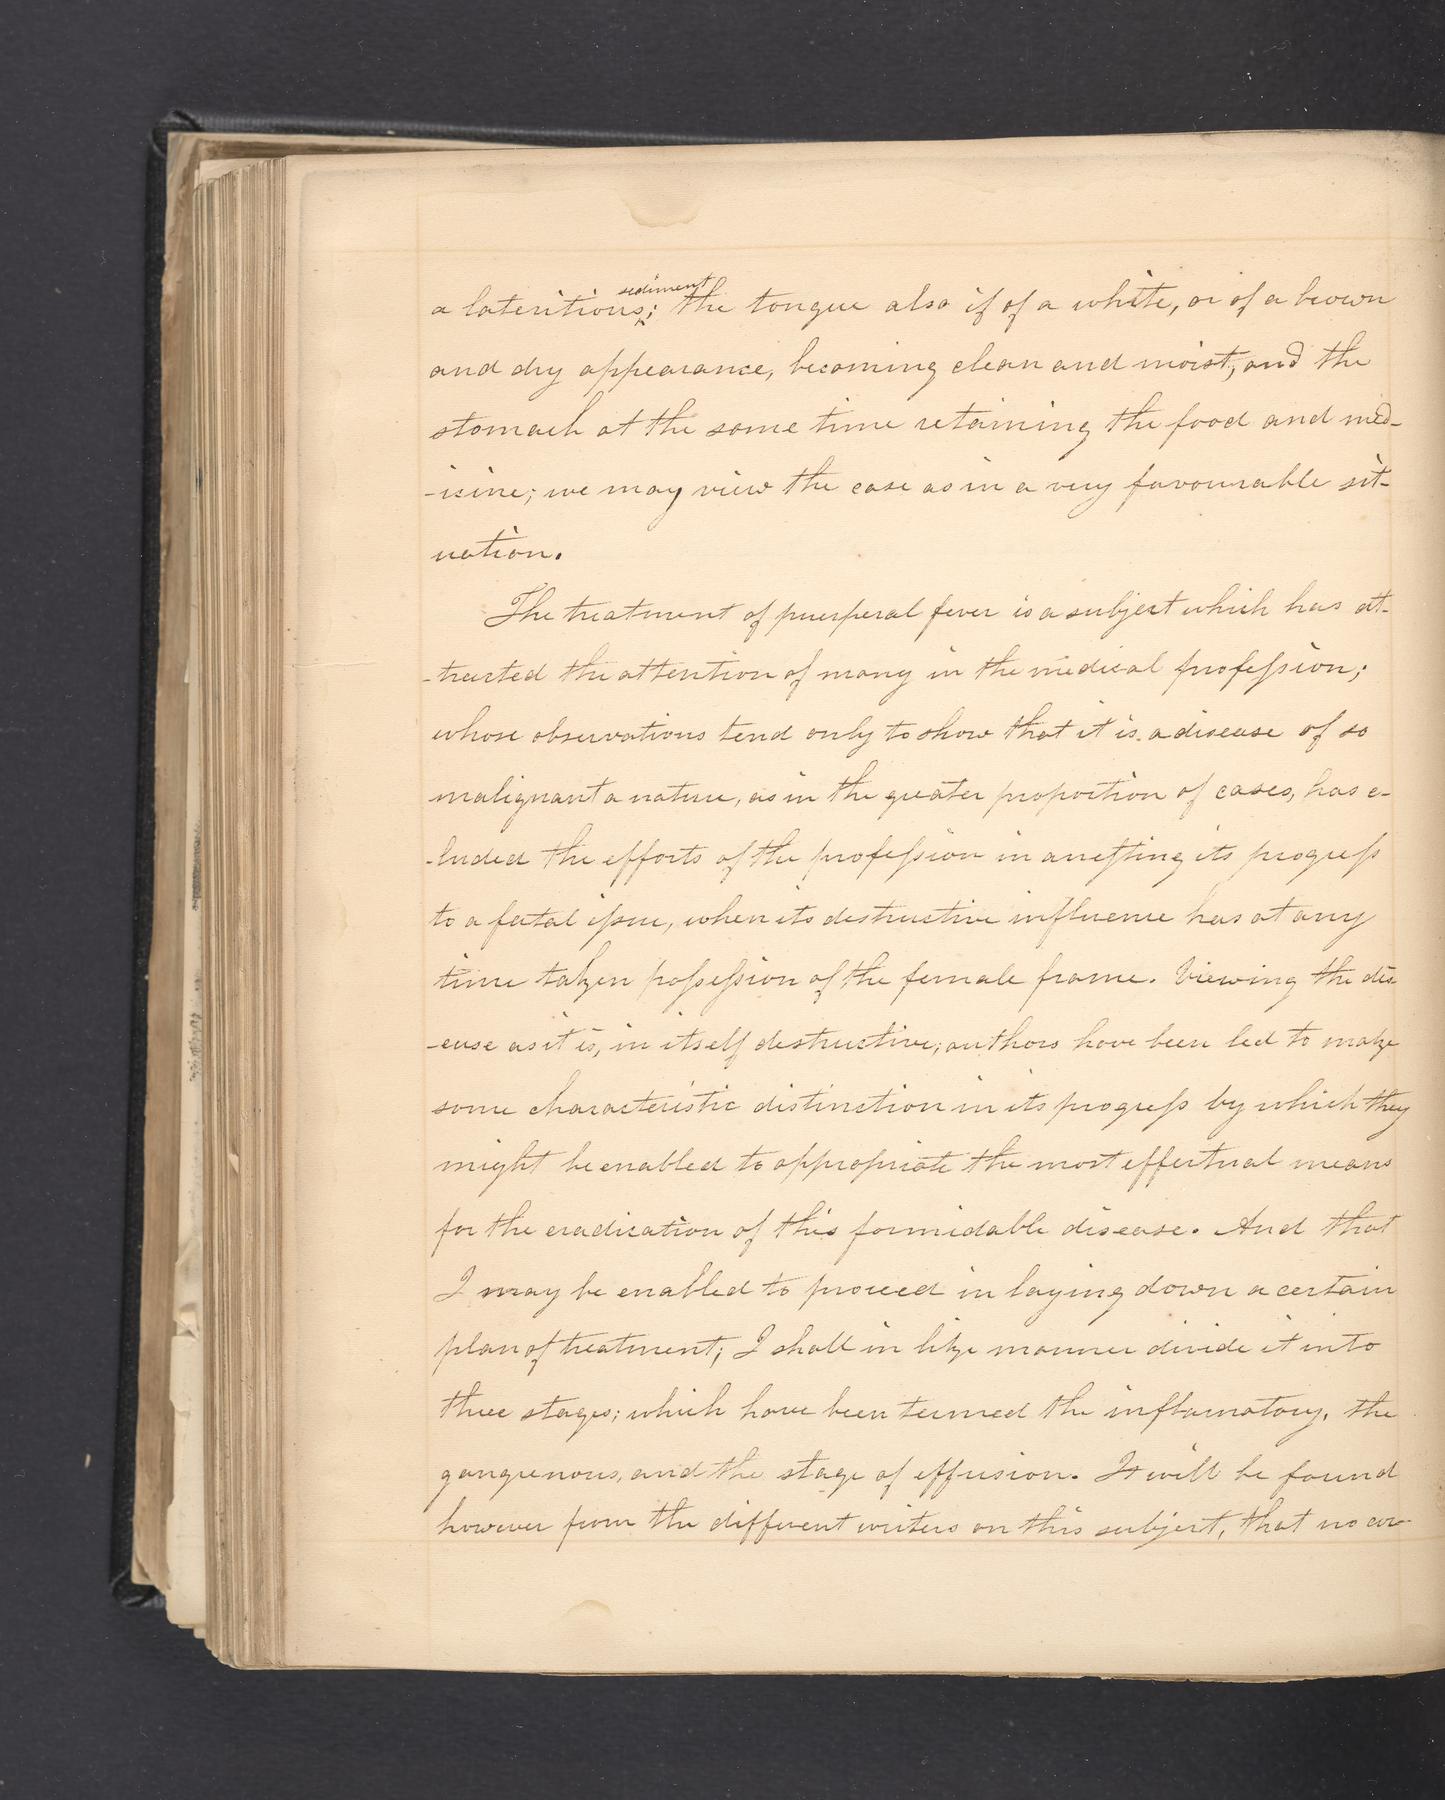 a lateritious sediment; the tongue also if of a white, or of a brown
and dry appearance, becoming clean and moist, and the
stomach at the same time retaining the food and med-
-icine; we may view the case as in a very favourable sit-
uation.
The treatment of puerperal fever is a subject which has at-
-tracted the attention of many in the medical profession;
whose observations tend only to show that it is a disease of so
malignant a nature, as in the greater proportion of cases, has e-
-luded the efforts of the profession in arresting its progress
to a fatal issue, when its destructive influence has at any
time taken possession of the female frame. Viewing the dis-
-ease as it is, in itself destructive; authors have been led to make
some characteristic distinction in its progress by which they
might be enabled to appropriate the most effectual means
for the eradication of this formidable disease. And that
I may be enabled to proceed in laying down a certain
plan of treatment; I shall in like manner divide it into
three stages; which have been termed the inflamatory, the
gangrenous, and the stage of effusion. It will be found
however from the different writers on this subject, that no